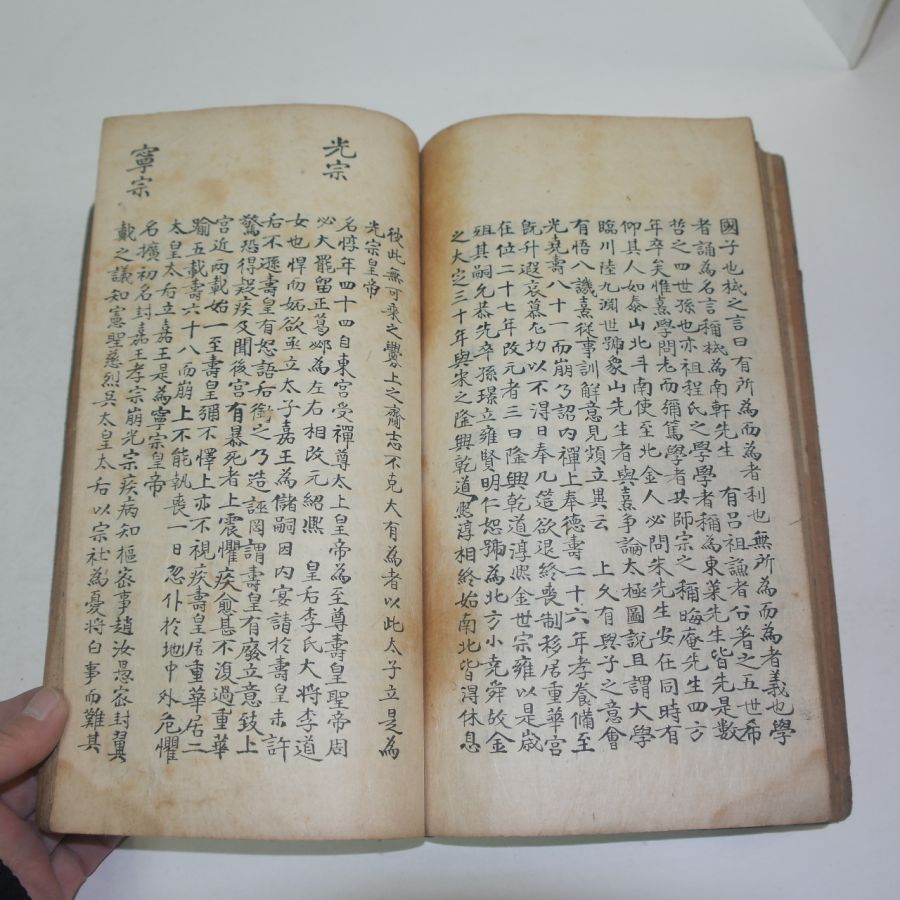 國子也栻之言曰有所為而為者利也無所為而為者義也學
者誦為名言稱栻為南軒先生 有呂祖謙者公著之五世希
哲之四世孫也亦祖程氏之學學者稱為東萊先生皆先是數
年卒矣惟熹學問老而彌篤學者共師宗之稱晦庵先生四方
仰其人如泰山北斗南使至北金人必問朱先生安在同時有
臨川陸九淵世號象山先生者與熹爭論太極圖說且謂大學
有悟八譏熹從事訓解意見頗立異云 上久有與子之意會
光堯壽八十一而崩乃詔內禪上奉德壽二十六年孝養備至
既升遐哀慕尤切以不淂日奉几筵欲退終喪制移居重華宮
在位二十七年改元者三曰隆興乾道淳熙金世宗雍以是歲
殂其嗣允恭先卒孫璟立雍賢明仁恕號為北方小堯舜故金
之大㝎三十年與宋之隆興乾道淳熙相終始南北皆得休息
彼此無可乘之釁上之齎志不克大有為者以此太子立是為
光宗皇帝
光宗
名惇年四十四自東宮受禪尊太上皇帝為至尊壽皇聖帝周
必大罷留正葛邲為左右相改元紹熙 皇后李氏大將李道
女也悍而妬欲亟立太子嘉王為儲嗣因內宴請於壽皇未許
后不遜壽皇有怒語后銜之乃造誣罔謂壽皇有廢立意致上
驚恐得疑疾及聞後宮有暴死者上震懼疾愈甚不復過重華
宮近兩載始一至壽皇彌不懌上亦不視疾壽皇居重華居二
踰五載壽六十八而崩上不能執喪一日忽仆於地中外危懼
太皇太后立嘉王是為寧宗皇帝
寧宗
名擴初名封嘉王孝宗崩光宗疾病知樞密事趙汝愚密封翼
戴之議知憲聖慈烈吳太皇太后以宗社為憂將白事而難其